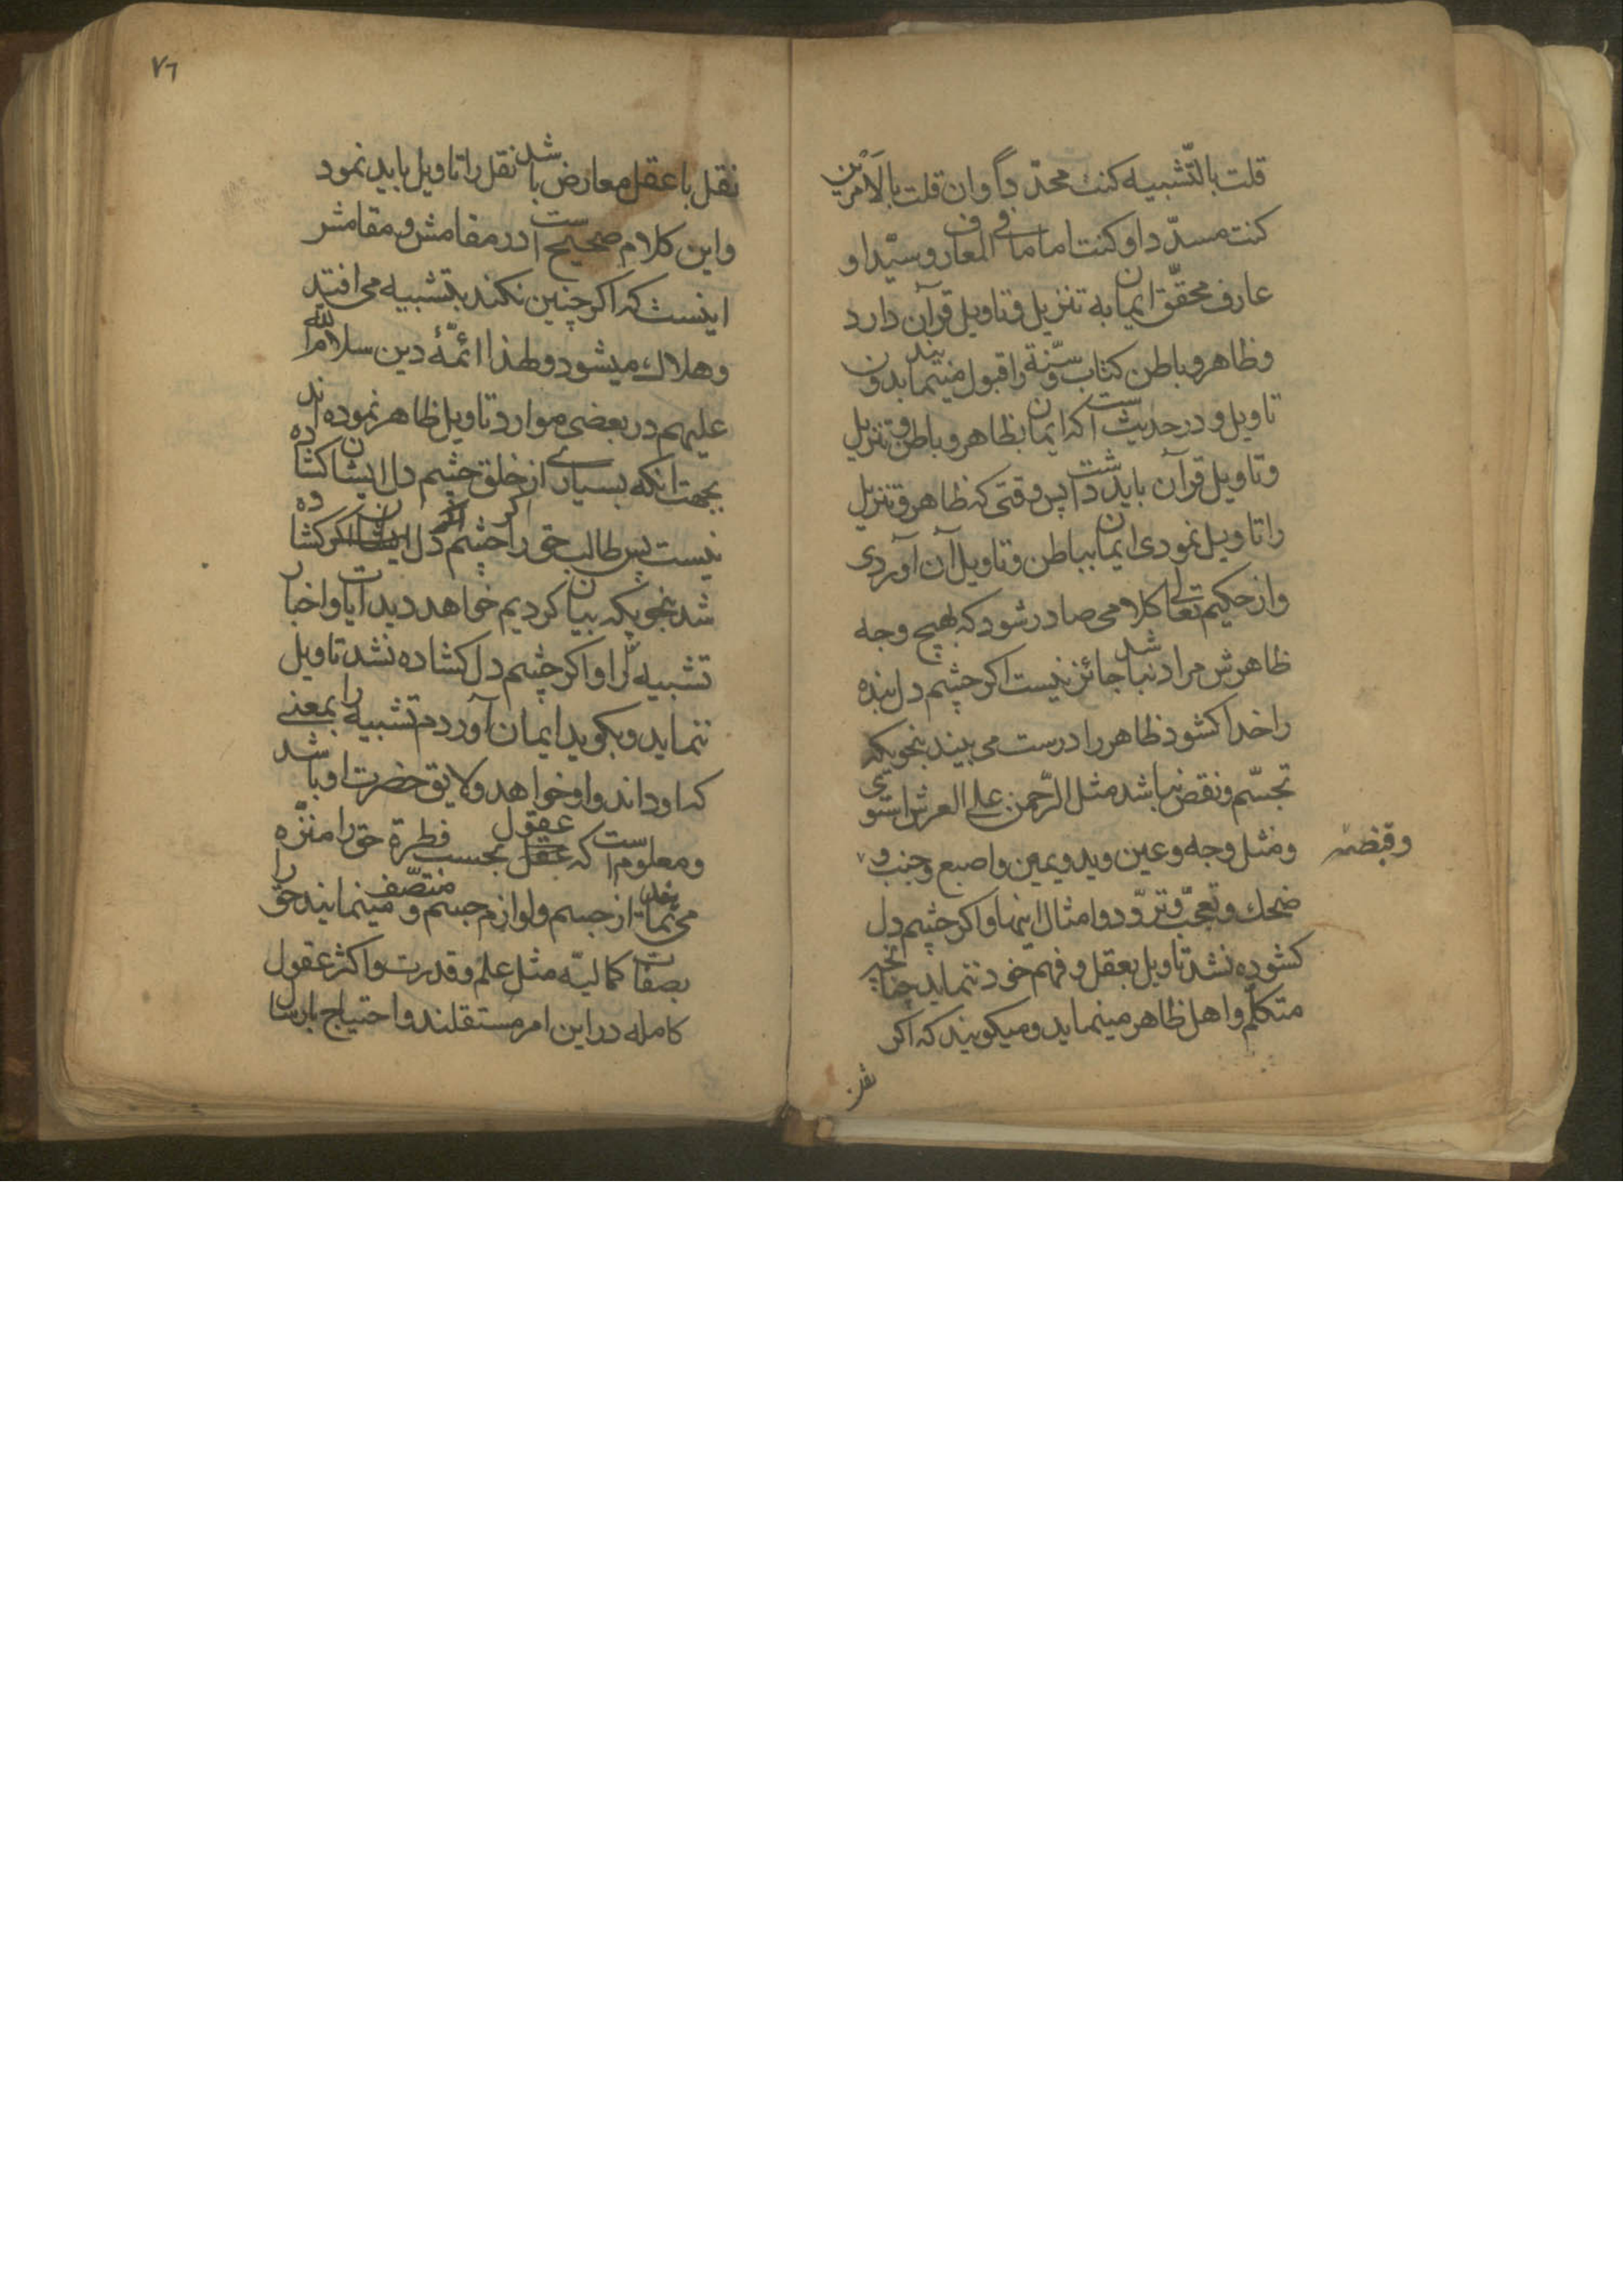 قلت بالتّشبیه کنت محدّدا وان قلت بالامرین
کنت مسدّدا و کنت اماما فی المعارف و سیّدا و
عارف محقّق ایمان به تنزیل و تاویل قرآن دارد
و ظاهر و باطن کتاب و سنّة را قبول مینمایند بدون
تاویل و در حدیث است که ایمان بظاهر و باطن و تنزیل
و تاویل قرآن باید داشت پس وقتی که ظاهر و تنزیل
را تاویل نمودی ایمان بباطن و تاویل آن آوردی
و از حکیم تعالی کلامی صادر شود که بهیچ وجه
ظاهرش مراد نباشد جائز نیست اکر چشم دل بنده
را خدا کشود ظاهر را درست می بیند بنحویکه
تجسّم و نقص نباشد مثل الرّحمن علی العرش استوی
و مثل وجه و عین و ید و یمین و اصبع و جنب و
و قبضه
ضحك و تعجّب و تردّد و امثال اینها و اکر چشم دل
کشوده نشد تاویل بعقل و فهم خود ننماید چنانچه
متکلّم و اهل ظاهر مینماید و میکویند که اکر
نقل
٧٦
نقل با عقل معارض باشد نقل را تاویل باید نمود
و این کلام صحیح است در مقامش و مقامش
اینست که اکر چنین نکند بتشبیه می افتد
و هلاك میشود و لهذا ائمّهٔ دین سلام الله
علیهم در بعضی موارد تاویل ظاهر نموده اند
بجهت انکه بسیاری از خلق چشم دل ایشان کشاده
نیست پس طالب حق را اکر چشم دل ایشان اکر کشاده
شد بنحویکه بیان کردیم خواهد دید آیات و اخبار
تشبیه را و اکر چشم دل کشاده نشد تاویل
ننماید و بکوید ایمان آوردم تشبیه را بمعنی
که او داند و او خواهد و لایق حضرت او باشد
و معلوم است که عقل عقول بحسب فطرة حق را منزّه
می نمایند از جسم و لوازم جسم و متصّف مینمایند حق را
بصفات کمالیّه مثل علم و قدرت و اکثر عقول
کامله در این امر مستقلند و احتیاج بارسال